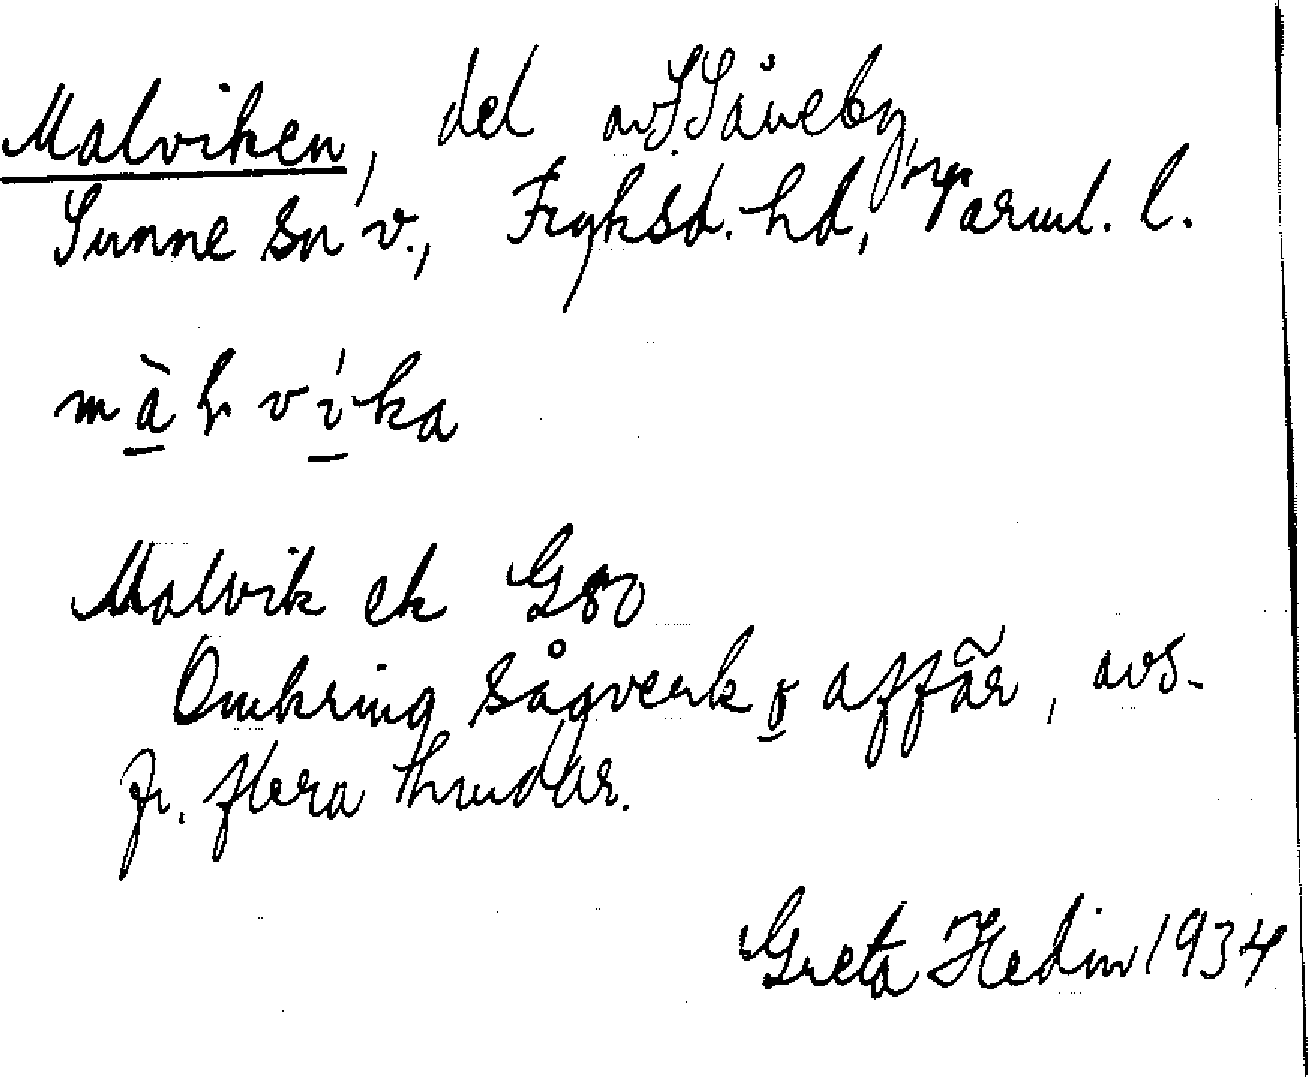 Malviken, del av S. Såneby,
Sunne sn v., Fryksd. hd, Värml. l.
màlvíka
Malvik ek G 80
Omkring sågverk & affär, avs.
fr. flera
Greta Hedin 1934